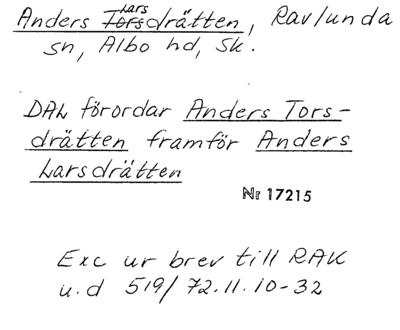 Lars
Anders Torsdrätten, Ravlunda
sn, Albo hd, Sk.
DAL förordar Anders Tors-
drätten framför Anders
Larsdrätten
Nr 17215
Exc ur brev till RAK
u.d 519/72.11.10-32